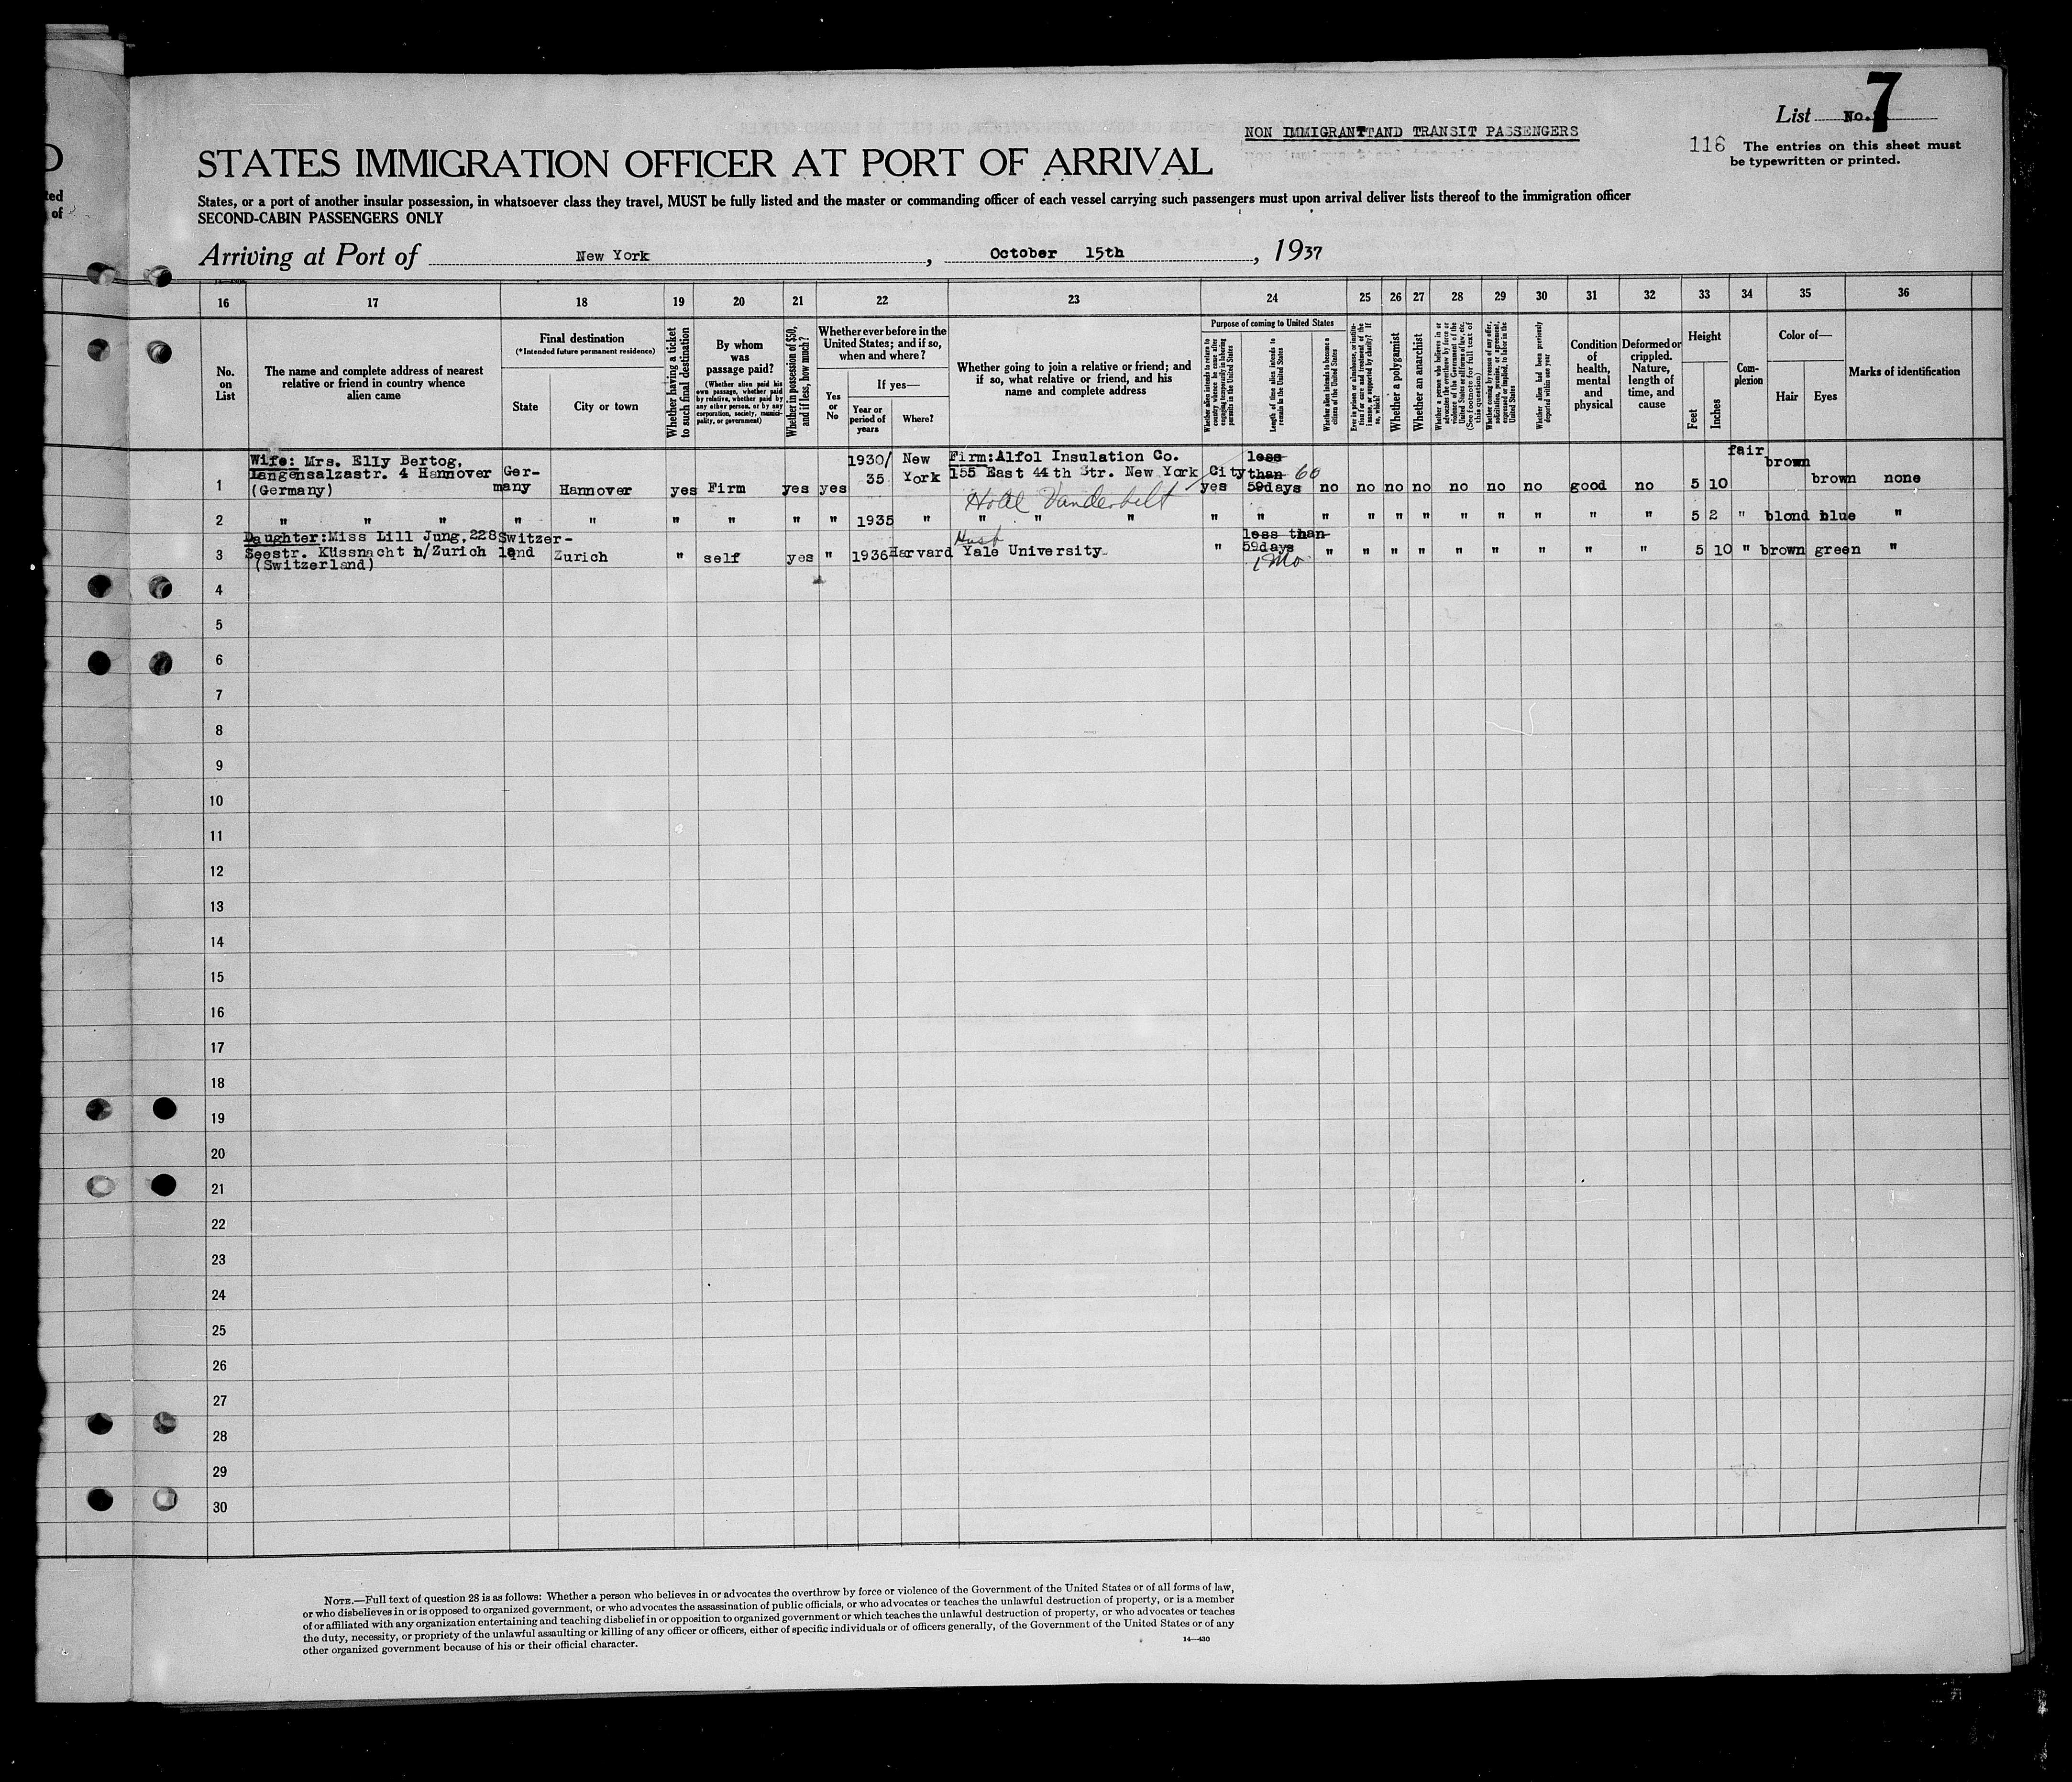 List No. 7
NON IMMIGRANT AND TRANSIT PASSENGERS
116 The entries on this sheet must
be typewritten or printed.
STATES IMMIGRATION OFFICER AT PORT OF ARRIVAL
States, or a port of another insular possession, in whatsoever class they travel, MUST be fully listed and the master or commanding officer of each vessel carrying such passengers must upon arrival deliver lists thereof to the immigration officer
SECOND-CABIN PASSENGERS ONLY
Arriving at Port of New York, October 15th, 1937
16 17 18 19 20 21 22 23 24 25 26 27 28 29 30 31 32 33 34 35 36
No. on List
The name and complete address of nearest relative or friend in country whence alien came
Final destination
(*Intended future permanent residence)
State
City or town
Whether having a ticket to such final destination
By whom was passage paid?
(Whether alien paid his own passage, whether paid by relative, whether paid by any other person, or by any corporation, society, municipality, or government)
Whether in possession of $50, and if less, how much?
Whether ever before in the United States; and if so, when and where?
Yes or No
If yes—
Year or period of years
Where?
Whether going to join a relative or friend; and if so, what relative or friend, and his name and complete address
Purpose of coming to United States
Whether alien intends to return to country whence he came after engaging temporarily in laboring pursuits in the United States
Length of time alien intends to remain in the United States
Whether alien intends to become a citizen of the United States
Ever in prison or almshouse, or institution for care and treatment of the insane, or supported by charity? If so, which?
Whether a polygamist
Whether an anarchist
Whether a person who believes in or advocates the overthrow by force or violence of the Government of the United States or all forms of law, etc. (See footnote for full text of this question)
Whether coming by reason of any offer, solicitation, promise, or agreement, expressed or implied, to labor in the United States
Whether alien had been previously deported within one year
Condition of health, mental and physical
Deformed or crippled. Nature, length of time, and cause
Height
Feet
Inches
Complexion
Color of—
Hair
Eyes
Marks of identification
1 Wife: Mrs. Elly Bertog, Langensalzastr. 4 Hannover (Germany) Ger-many Hannover yes Firm yes yes 1930/35 New York Firm:Alfol Insulation Co. 155 East 44th Str. New York City Hotel Vanderbilt yes less than 59days 60 no no no no no no no good no 5 10 fair brown brown none
2 " " " " " " " " " 1935 " " " " " " " " " " " " " " " 5 2 " blond blue "
3 Daughter:Miss Lill Jung, 228 Seestr. Küssnacht n/Zurich (Switzerland) Switzer-land Zurich " self yes " 1936 Harvard Husb Yale University " less than 59days 1 Mo " " " " " " " " " 5 10 " brown green "
4
5
6
7
8
9
10
11
12
13
14
15
16
17
18
19
20
21
22
23
24
25
26
27
28
29
30
NOTE.—Full text of question 28 is as follows: Whether a person who believes in or advocates the overthrow by force or violence of the Government of the United States or of all forms of law,
or who disbelieves in or is opposed to organized government, or who advocates the assassination of public officials, or who advocates or teaches the unlawful destruction of property, or is a member
of or affiliated with any organization entertaining and teaching disbelief in or opposition to organized government or which teaches the unlawful destruction of property, or who advocates or teaches
the duty, necessity, or propriety of the unlawful assaulting or killing of any officer or officers, either of specific individuals or of officers generally, of the Government of the United States or of any
other organized government because of his or their official character.
14—430